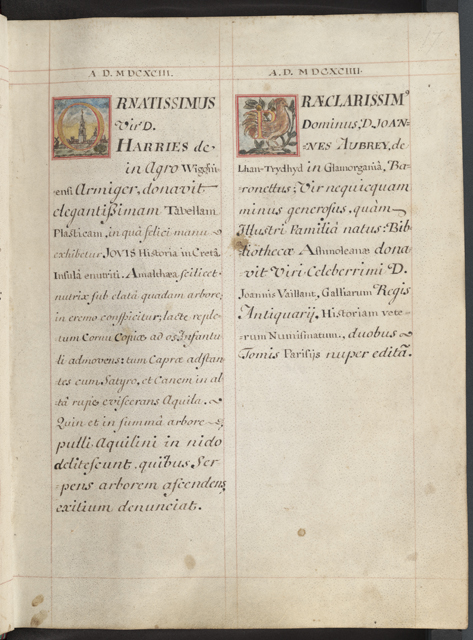 17
A D. MDCXCIII.
ORNATISSIMUS
Vir D.
HARRIES de
in Agro Wiggorn-
ensi Armiger, donavit
elegantissimam Tabellam
Plasticam, in quâ felici manu
exhibetur JOVIS Historia in Cretâ
Insulâ enutriti. Amalthæa scilicet
nutrix sub elatâ quadam arbore,
in eremo conspicitur; lacte reple-
tum Cornu Copiæ ad os Infantu-
li admovens: tum Capræ adstan-
tes cum Satyro, et Canem in al-
tâ rupe eviscerans Aquila.
Quin et in summâ arbore
pulli Aquilini in nido
delitescunt, quibus Ser-
pens arborem ascendens
exitium denunciat.
A. D. MDCXCIIII.
PRÆCLARISSIMꝰ
Dominus, D. JOAN-
NES AUBREY, de
Lhan-Trydhyd in Glamorganiâ, Ba-
ronettus: Vir nequicquam
minus generosus, quàm
Illustri Familiâ natus: Bib-
liothecæ Ashmoleanæ dona-
vit Viri Celeberrimi D.
Joannis Vaillant, Galliarum Regis
Antiquarij, Historiam vete-
rum Numismatum, duobus
Tomis Parisijs nuper editã.